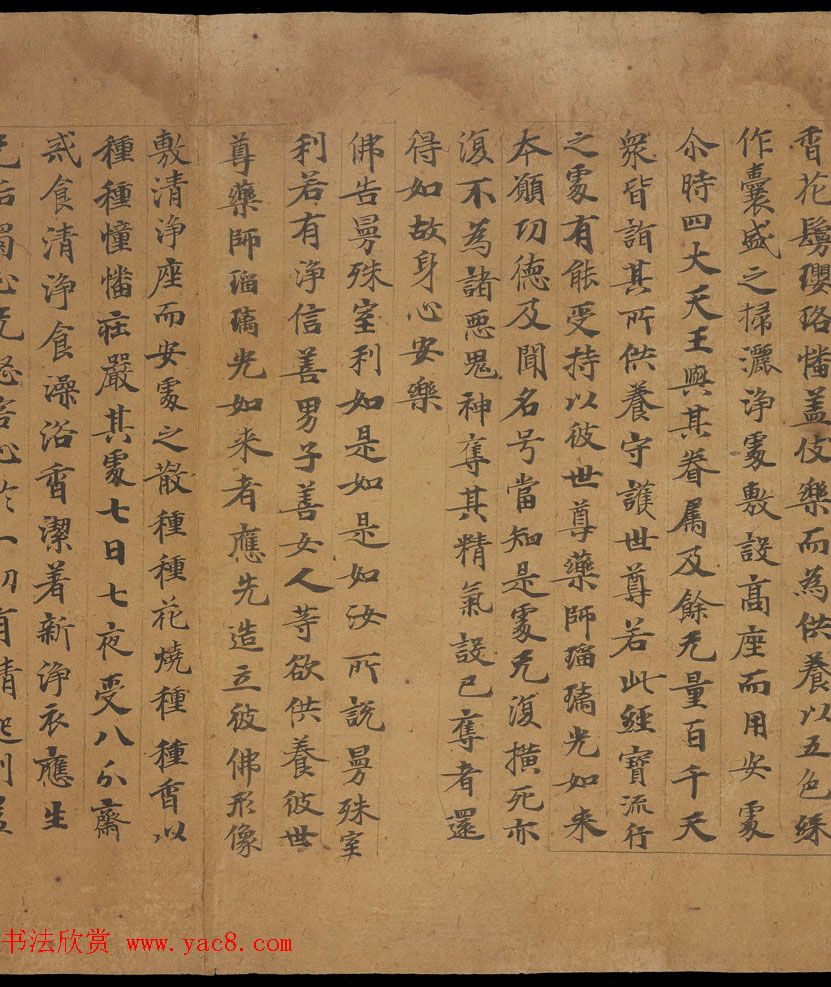 香花鬘瓔珞幡蓋伎樂而為供養以五色綵
作囊盛之掃灑淨處敷設高座而用安處
尒時四大天王與其眷属及餘无量百千天
衆皆詣其所供養守護世尊若此經寶流行
之處有能受持以彼世尊藥師瑠璃光如来
本願功德及聞名号當知是處无復橫死亦
復不為諸惡鬼神奪其精氣設已奪者還
得如故身心安樂
佛告曼殊室利如是如是如汝所說曼殊室
利若有淨信善男子善女人等欲供養彼世
尊藥師瑠璃光如来者應先造立彼佛形像
敷清淨座而安處之散種種花燒種種香以
種種憧幡莊嚴其處七日七夜受八分齋
戒食清淨食澡浴香潔著新淨衣應生
无垢濁心无怒害心於一切有情起利益
书法欣赏 www.yac8.com